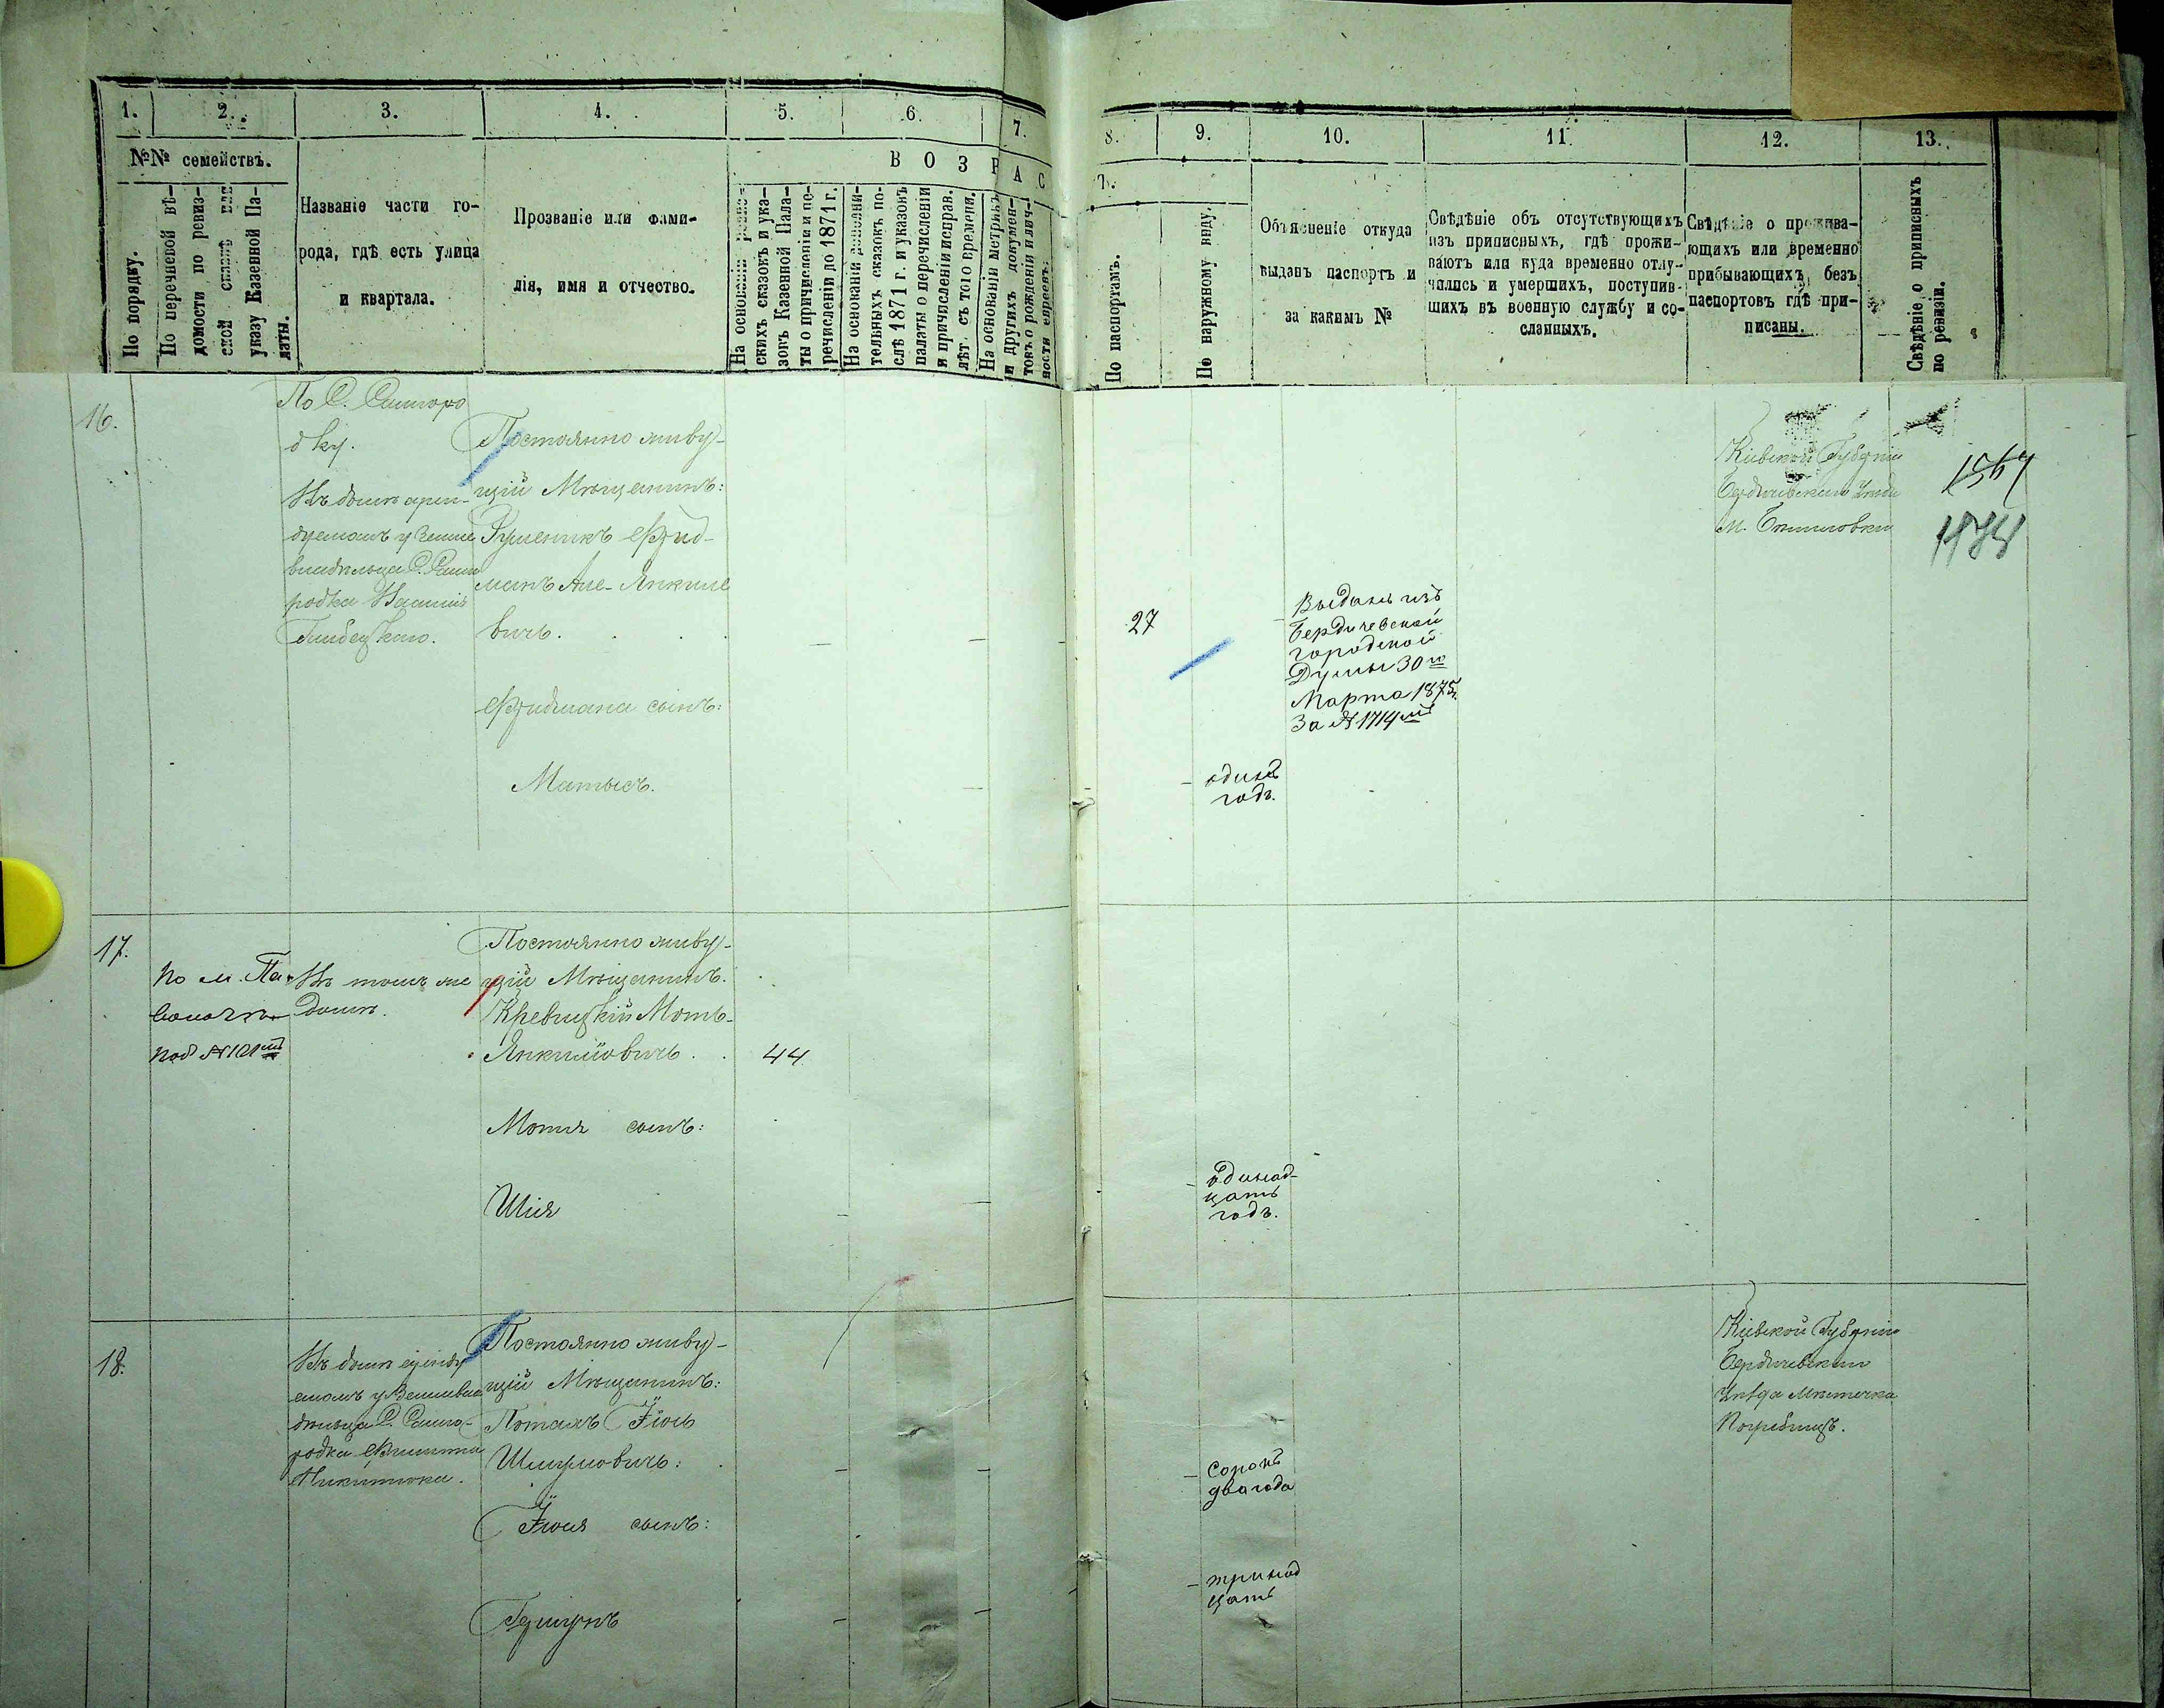 1.
2.
3.
4.
5.
6.
7.
8.
9.
10.
11.
12.
13.
№№ семействъ.
В О З Р А С
По порядку.
По перечневой вѣ-
домости по ревиз-
ской сказкѣ или
указу Казенной Па-
латы.
Названіе части го-
рода, гдѣ есть улица
и квартала.
Прозваніе или фами-
лія, имя и отчество.
На основаніи ревиз-
скихъ сказокъ и ука-
зокъ Казенной Пала-
ты о причисленіи и пе-
речисленіи до 1871 г.
На основаніи дополни-
тельныхъ сказокъ по-
слѣ 1871 г. и указокъ
палаты о перечисленіи
и причисленіи исправ.
лѣт. съ того времени.
На основаніи метрикъ
и другихъ докумен-
токъ о рожденіи и лич-
ности евреевъ.
Т.
По паспортамъ.
По наружному виду.
Объясненіе откуда
выданъ паспортъ и
за какимъ №
Свѣдѣніе объ отсутствующихъ
изъ приписныхъ, гдѣ прожи-
ваютъ или куда временно отлу-
чились и умершихъ, поступив-
шихъ въ военную службу и со-
сланныхъ.
Свѣдѣніе о прожива-
ющихъ или временно
прибывающихъ, безъ
паспортовъ гдѣ при-
писаны.
Свѣдѣніе о приписныхъ
по ревизіи.
16.
По С. Самгоро
дку.
Въ домѣ арен-
дуемомъ у Земле
владѣльца С. Самго
родка
Постоянно живу-
щій Мѣщанинъ:
Фрид-
манъ Янкиле
вичъ.
Фридмана сынъ:
Матысъ.
27
Выданъ изъ
Бердичевской
городской
Думы 30го
Марта 1875.
За № 1714мъ
одинъ
годъ.
Кіевской Губерніи
Бердичевскаго Уѣзда
м.
17.
По м. Па-
волочь
под №101мъ
Въ томъ же
домѣ.
Постоянно живу-
щій Мѣщанинъ.
Мотъ-
Янкиловичъ.
44.
Мотя сынъ:
Шія
одинад-
цать
годъ.
18.
Въ домѣ аренду
емомъ у Землевла
дѣльца С. Самго-
родка
Никитюка.
Постоянно живу-
щій Мѣщанинъ:
Іось
Шмулювичъ:
Іося сынъ:
Гершунъ
сорокъ
два года
тринад
цать
Кіевской Губерніи
Бердичевскаго
Уѣзда Мѣстечка
Погребищъ.